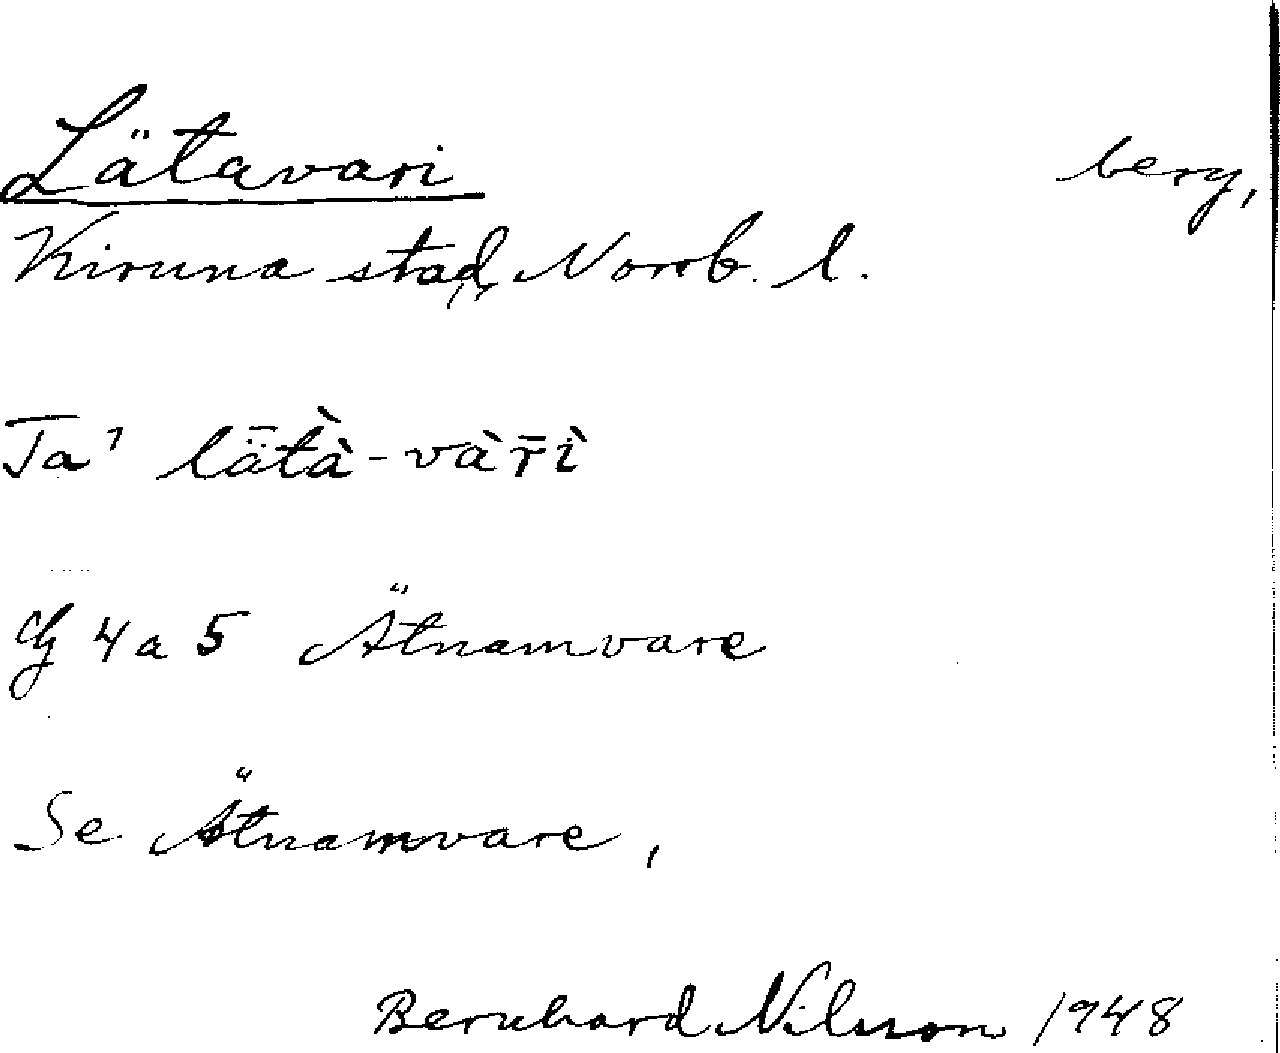 Lätavari berg,
Kiruna stad, Norrb. l.
Ta' lǟtà-vàr̄ì
G 4 a 5 Ätnamvare
Se Ätnamvare,
Bernhard Nilsson 1948